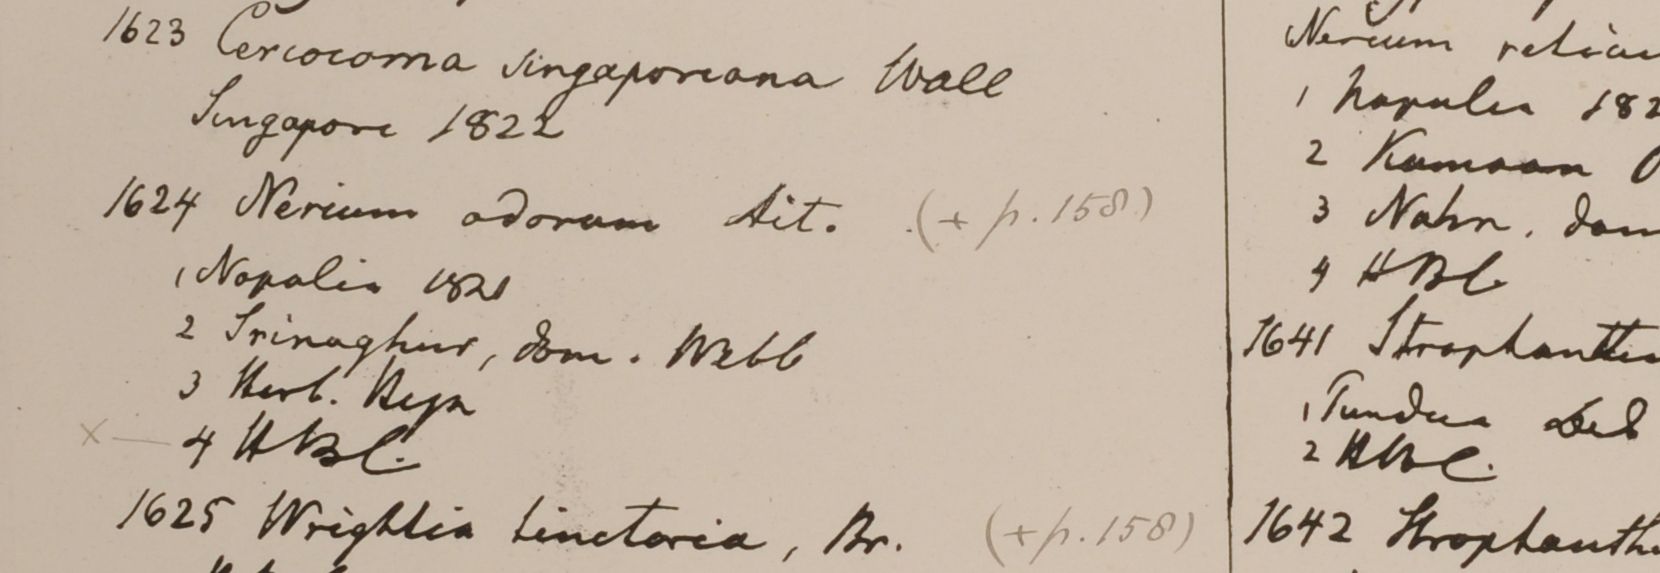 1623 Cercocoma singaporeana Wall
Singapore 1822
1624 Nerium odorum Ait. (+ p. 158)
1 Napalia 1821
2 Srinaghur, dom. Webb
3 Herb. Heyn
× — 4 HBC.
1625 Wrightia tinctoria, Br. (+ p. 158)
Nerium
1 Napalia 182
2 Kamaon
3 Nahn. dom
4 HBC
1641 Strophanthu
1 Tundua
2 HBC.
1642 Strophanth